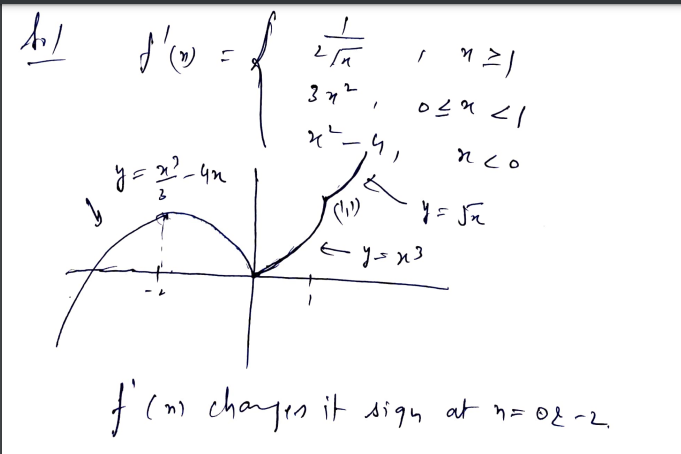 f'(x) = { 1/2√x , x ≥ 1
3x² , 0 ≤ x < 1
x² - 4 , x < 0
y = x³/3 - 4x
(1,1)
y = √x
y = x3
-2
1
f'(x) changes it sign at x = 0 & -2.